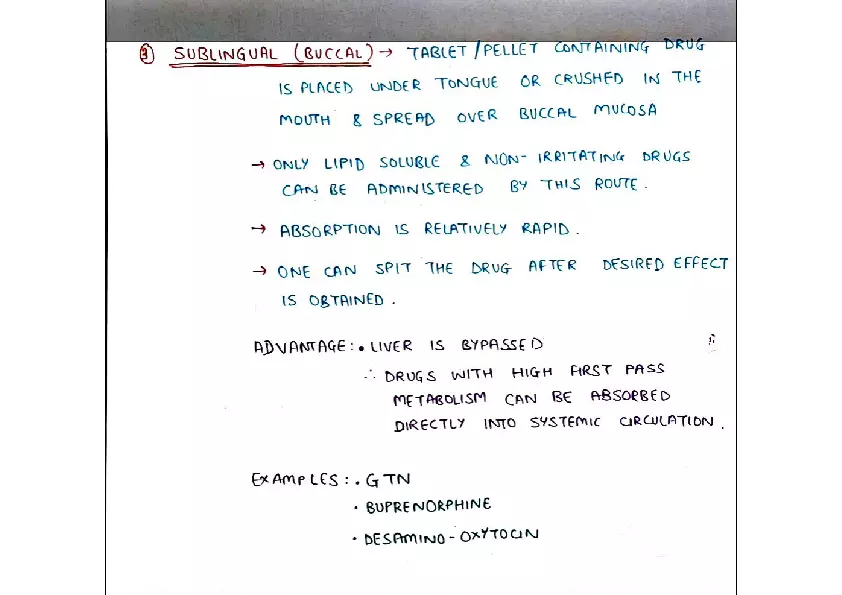 ③ SUBLINGUAL (BUCCAL) → TABLET/PELLET CONTAINING DRUG
IS PLACED UNDER TONGUE OR CRUSHED IN THE
MOUTH & SPREAD OVER BUCCAL MUCOSA
→ ONLY LIPID SOLUBLE & NON-IRRITATING DRUGS
CAN BE ADMINISTERED BY THIS ROUTE.
→ ABSORPTION IS RELATIVELY RAPID.
→ ONE CAN SPIT THE DRUG AFTER DESIRED EFFECT
IS OBTAINED.
ADVANTAGE: • LIVER IS BYPASSED
∴ DRUGS WITH HIGH FIRST PASS
METABOLISM CAN BE ABSORBED
DIRECTLY INTO SYSTEMIC CIRCULATION.
EXAMPLES: • GTN
• BUPRENORPHINE
• DESAMINO-OXYTOCIN